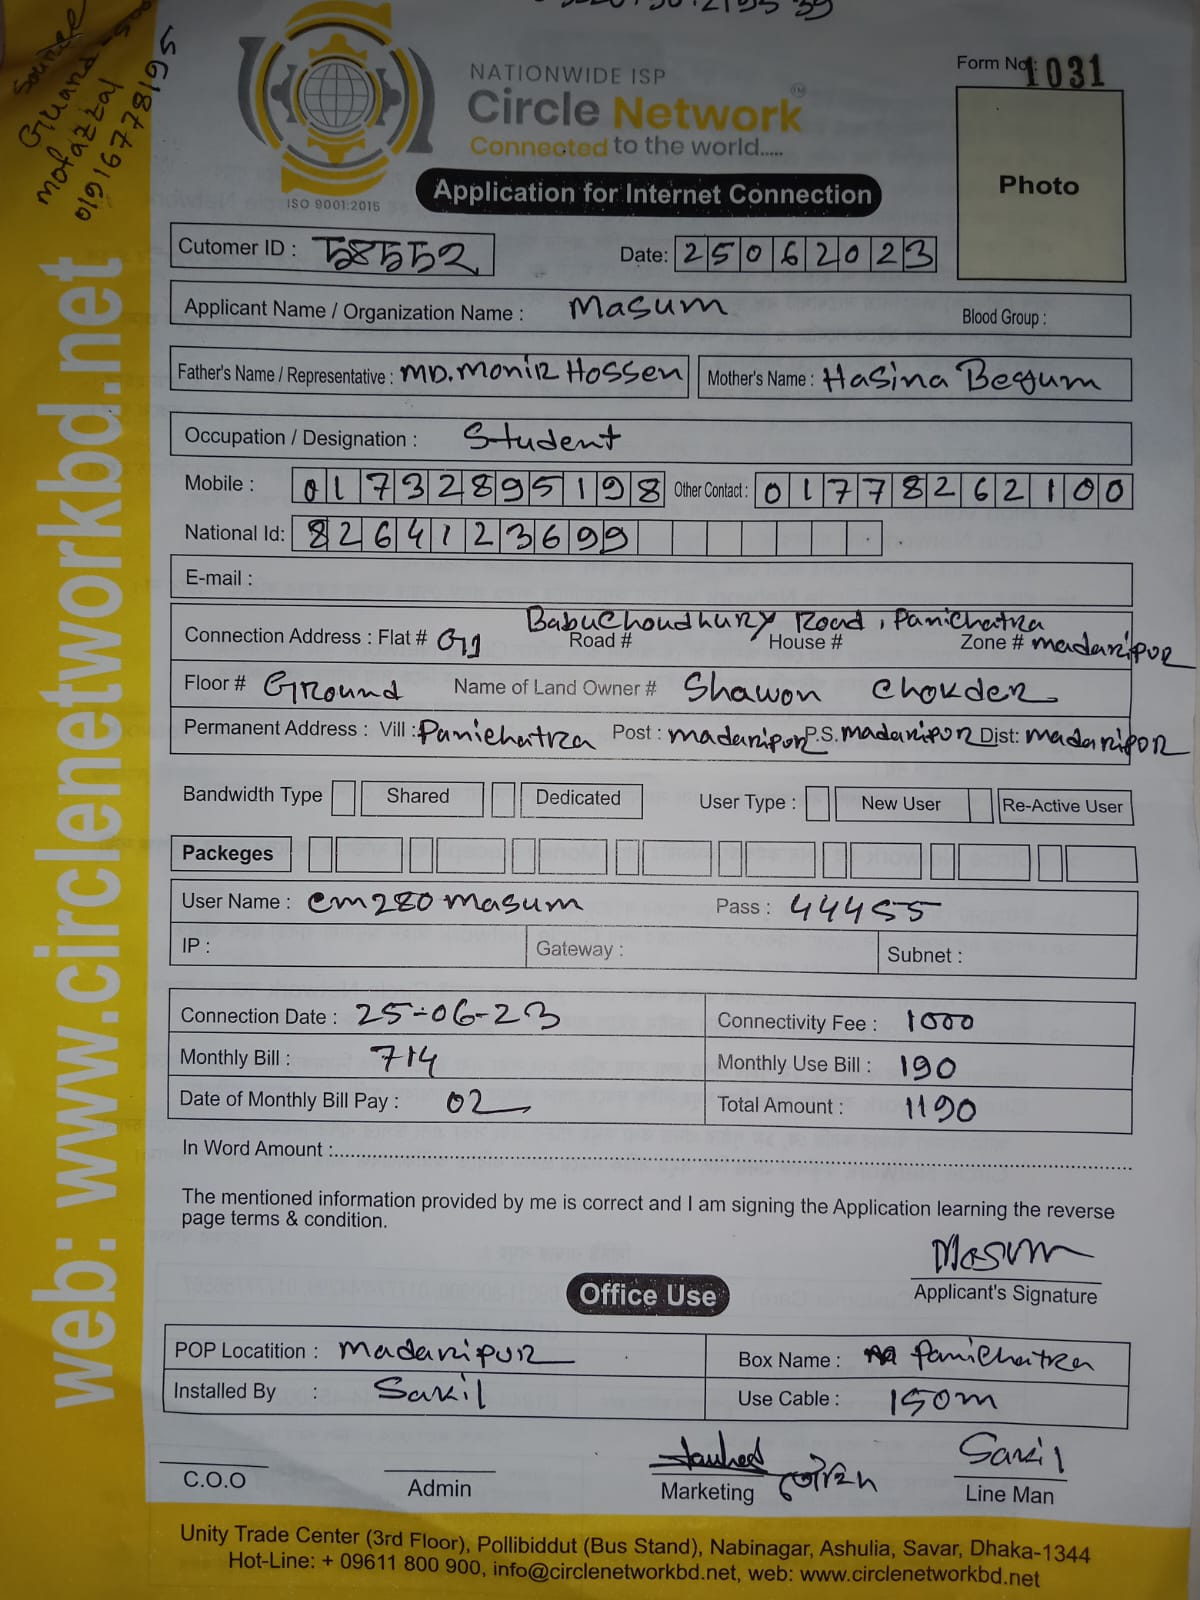 Source
Guard
mofazzal
01916778195
NATIONWIDE ISP
Circle Network
Connected to the world.....
ISO 9001:2015
Form No: 1031
Photo
Application for Internet Connection
Cutomer ID : 58552 Date: 25062023
Applicant Name / Organization Name : Masum Blood Group :
Father's Name / Representative : MD. Monir Hossen Mother's Name : Hasina Begum
Occupation / Designation : Student
Mobile : 01732895198 Other Contact : 01778262100
National Id: 8264123699
E-mail :
Babu Choudhury Road, Panichatra
Connection Address : Flat # G1 Road # House # Zone # madaripur
Floor # Ground Name of Land Owner # Shawon Chokder
Permanent Address : Vill : Panichatra Post : madaripur P.S. madaripur Dist: madaripur
Bandwidth Type Shared Dedicated User Type : New User Re-Active User
Packeges
User Name : cm280masum Pass : 444455
IP : Gateway : Subnet :
Connection Date : 25-06-23 Connectivity Fee : 1000
Monthly Bill : 714 Monthly Use Bill : 190
Date of Monthly Bill Pay : 02 Total Amount : 1190
In Word Amount :
The mentioned information provided by me is correct and I am signing the Application learning the reverse
page terms & condition.
Masum
Applicant's Signature
Office Use
POP Locatition : madaripur Box Name : Panichatra
Installed By : Sakil Use Cable : 150m
Sakil
C.O.O Admin Marketing Line Man
Unity Trade Center (3rd Floor), Pollibiddut (Bus Stand), Nabinagar, Ashulia, Savar, Dhaka-1344
Hot-Line: + 09611 800 900, info@circlenetworkbd.net, web: www.circlenetworkbd.net
web: www.circlenetworkbd.net